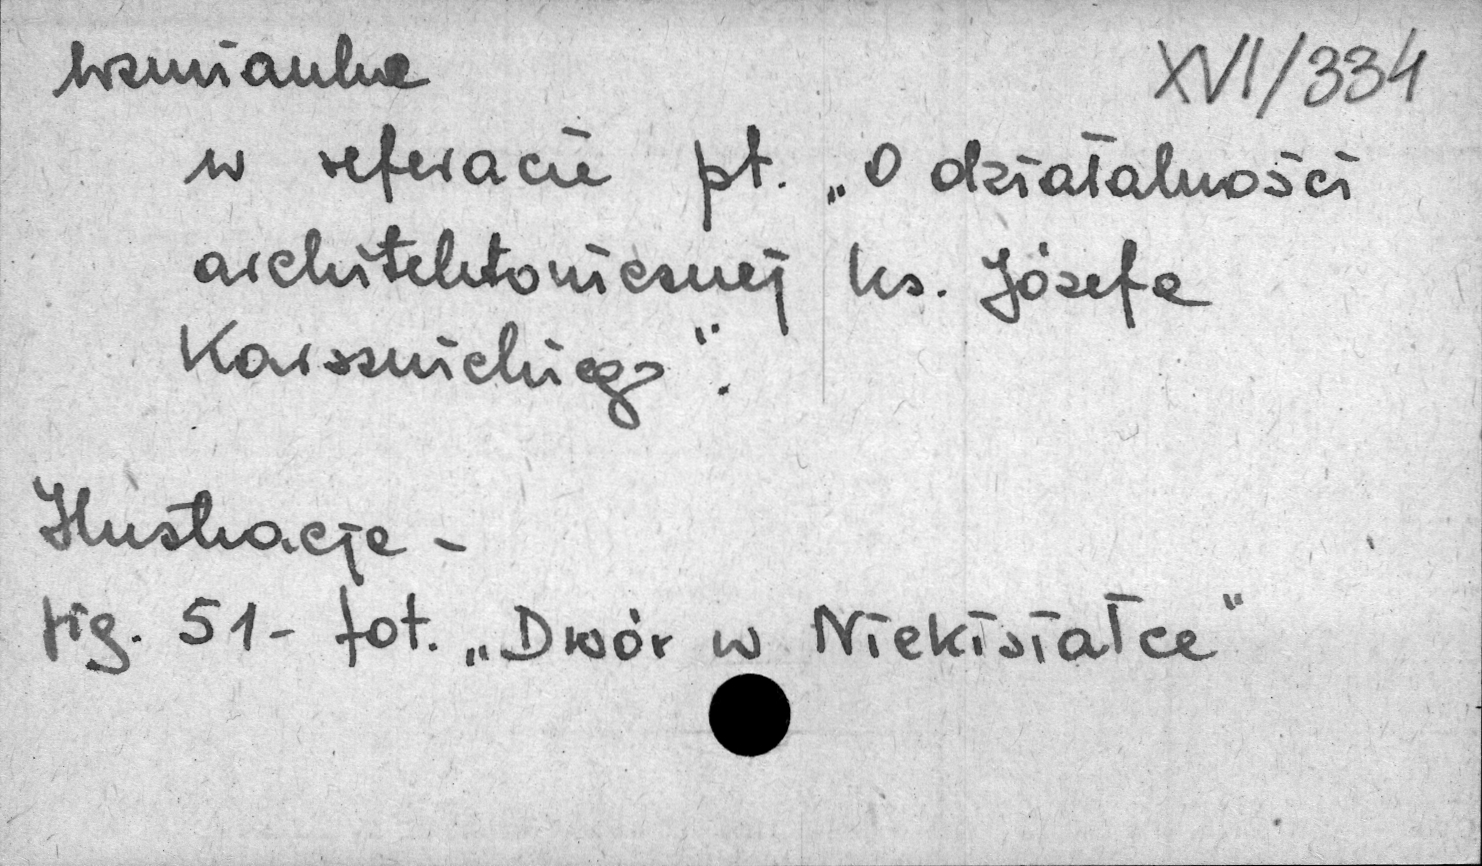 wzmianka
XVI/334
w referacie pt. „O działalności
architektonicznej ks. Józefa
Karsznickiego".
Ilustracje -
fig. 51 - fot. „Dwór w Niekisiałce"